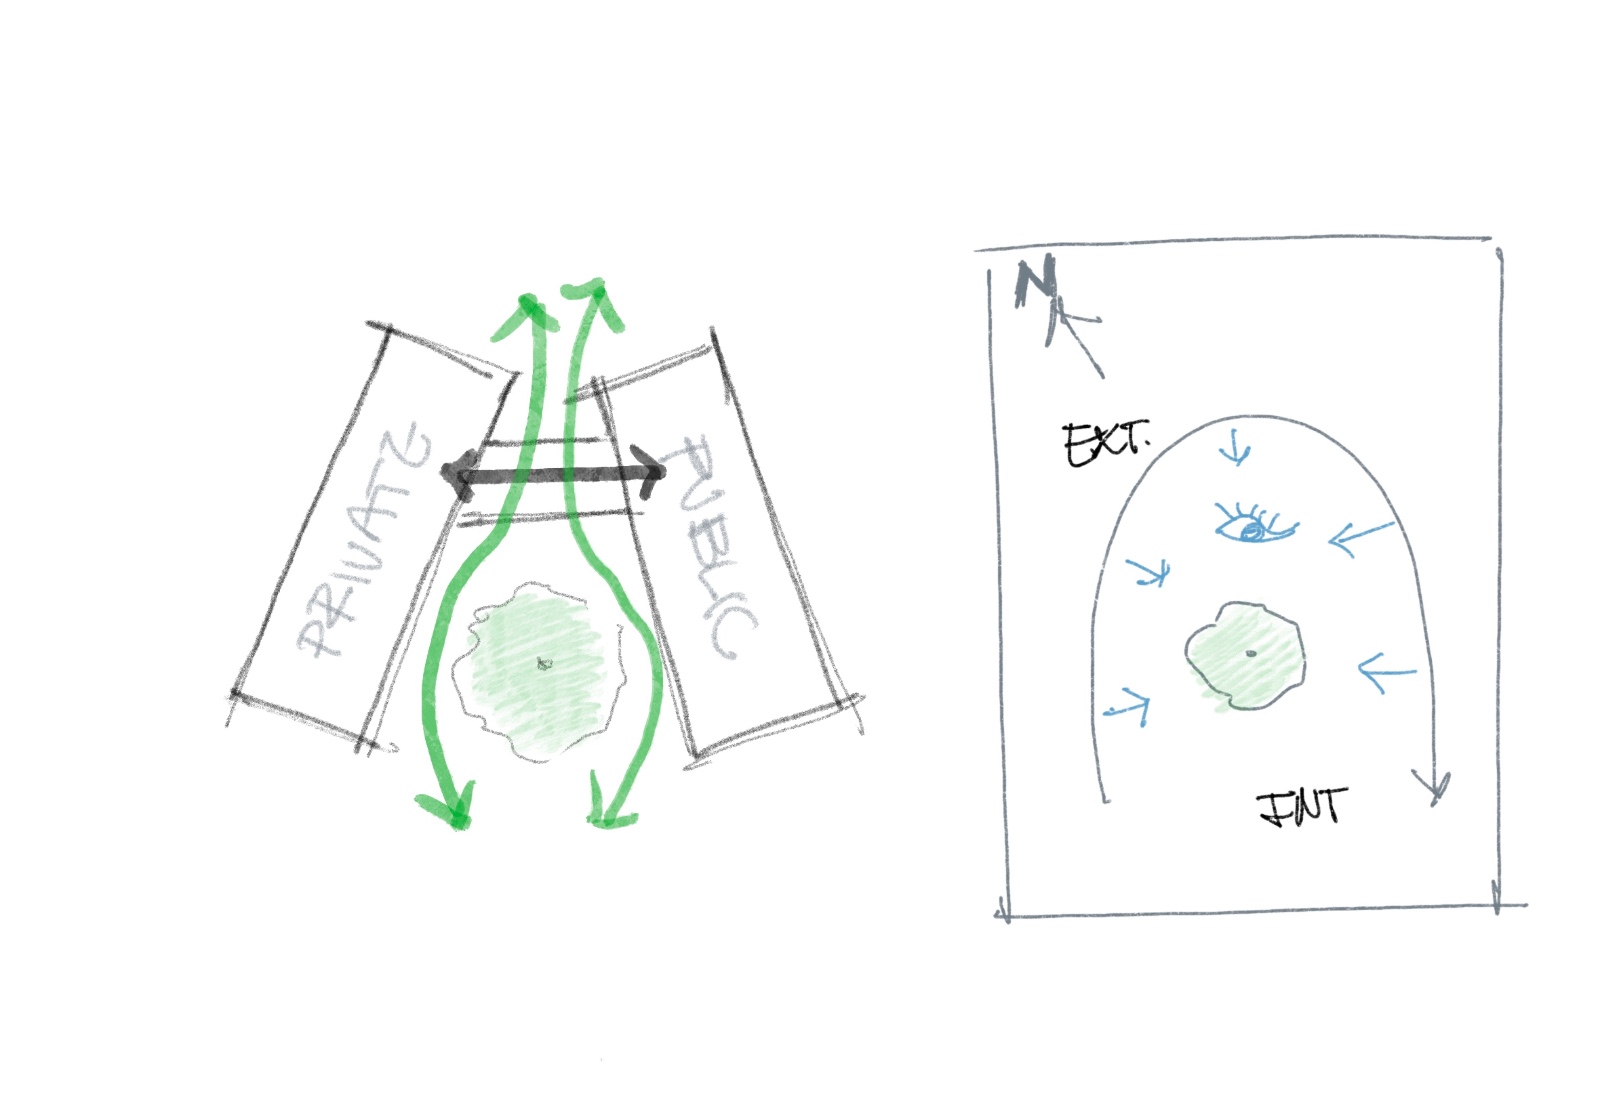 PRIVATE
PUBLIC
N
EXT.
INT